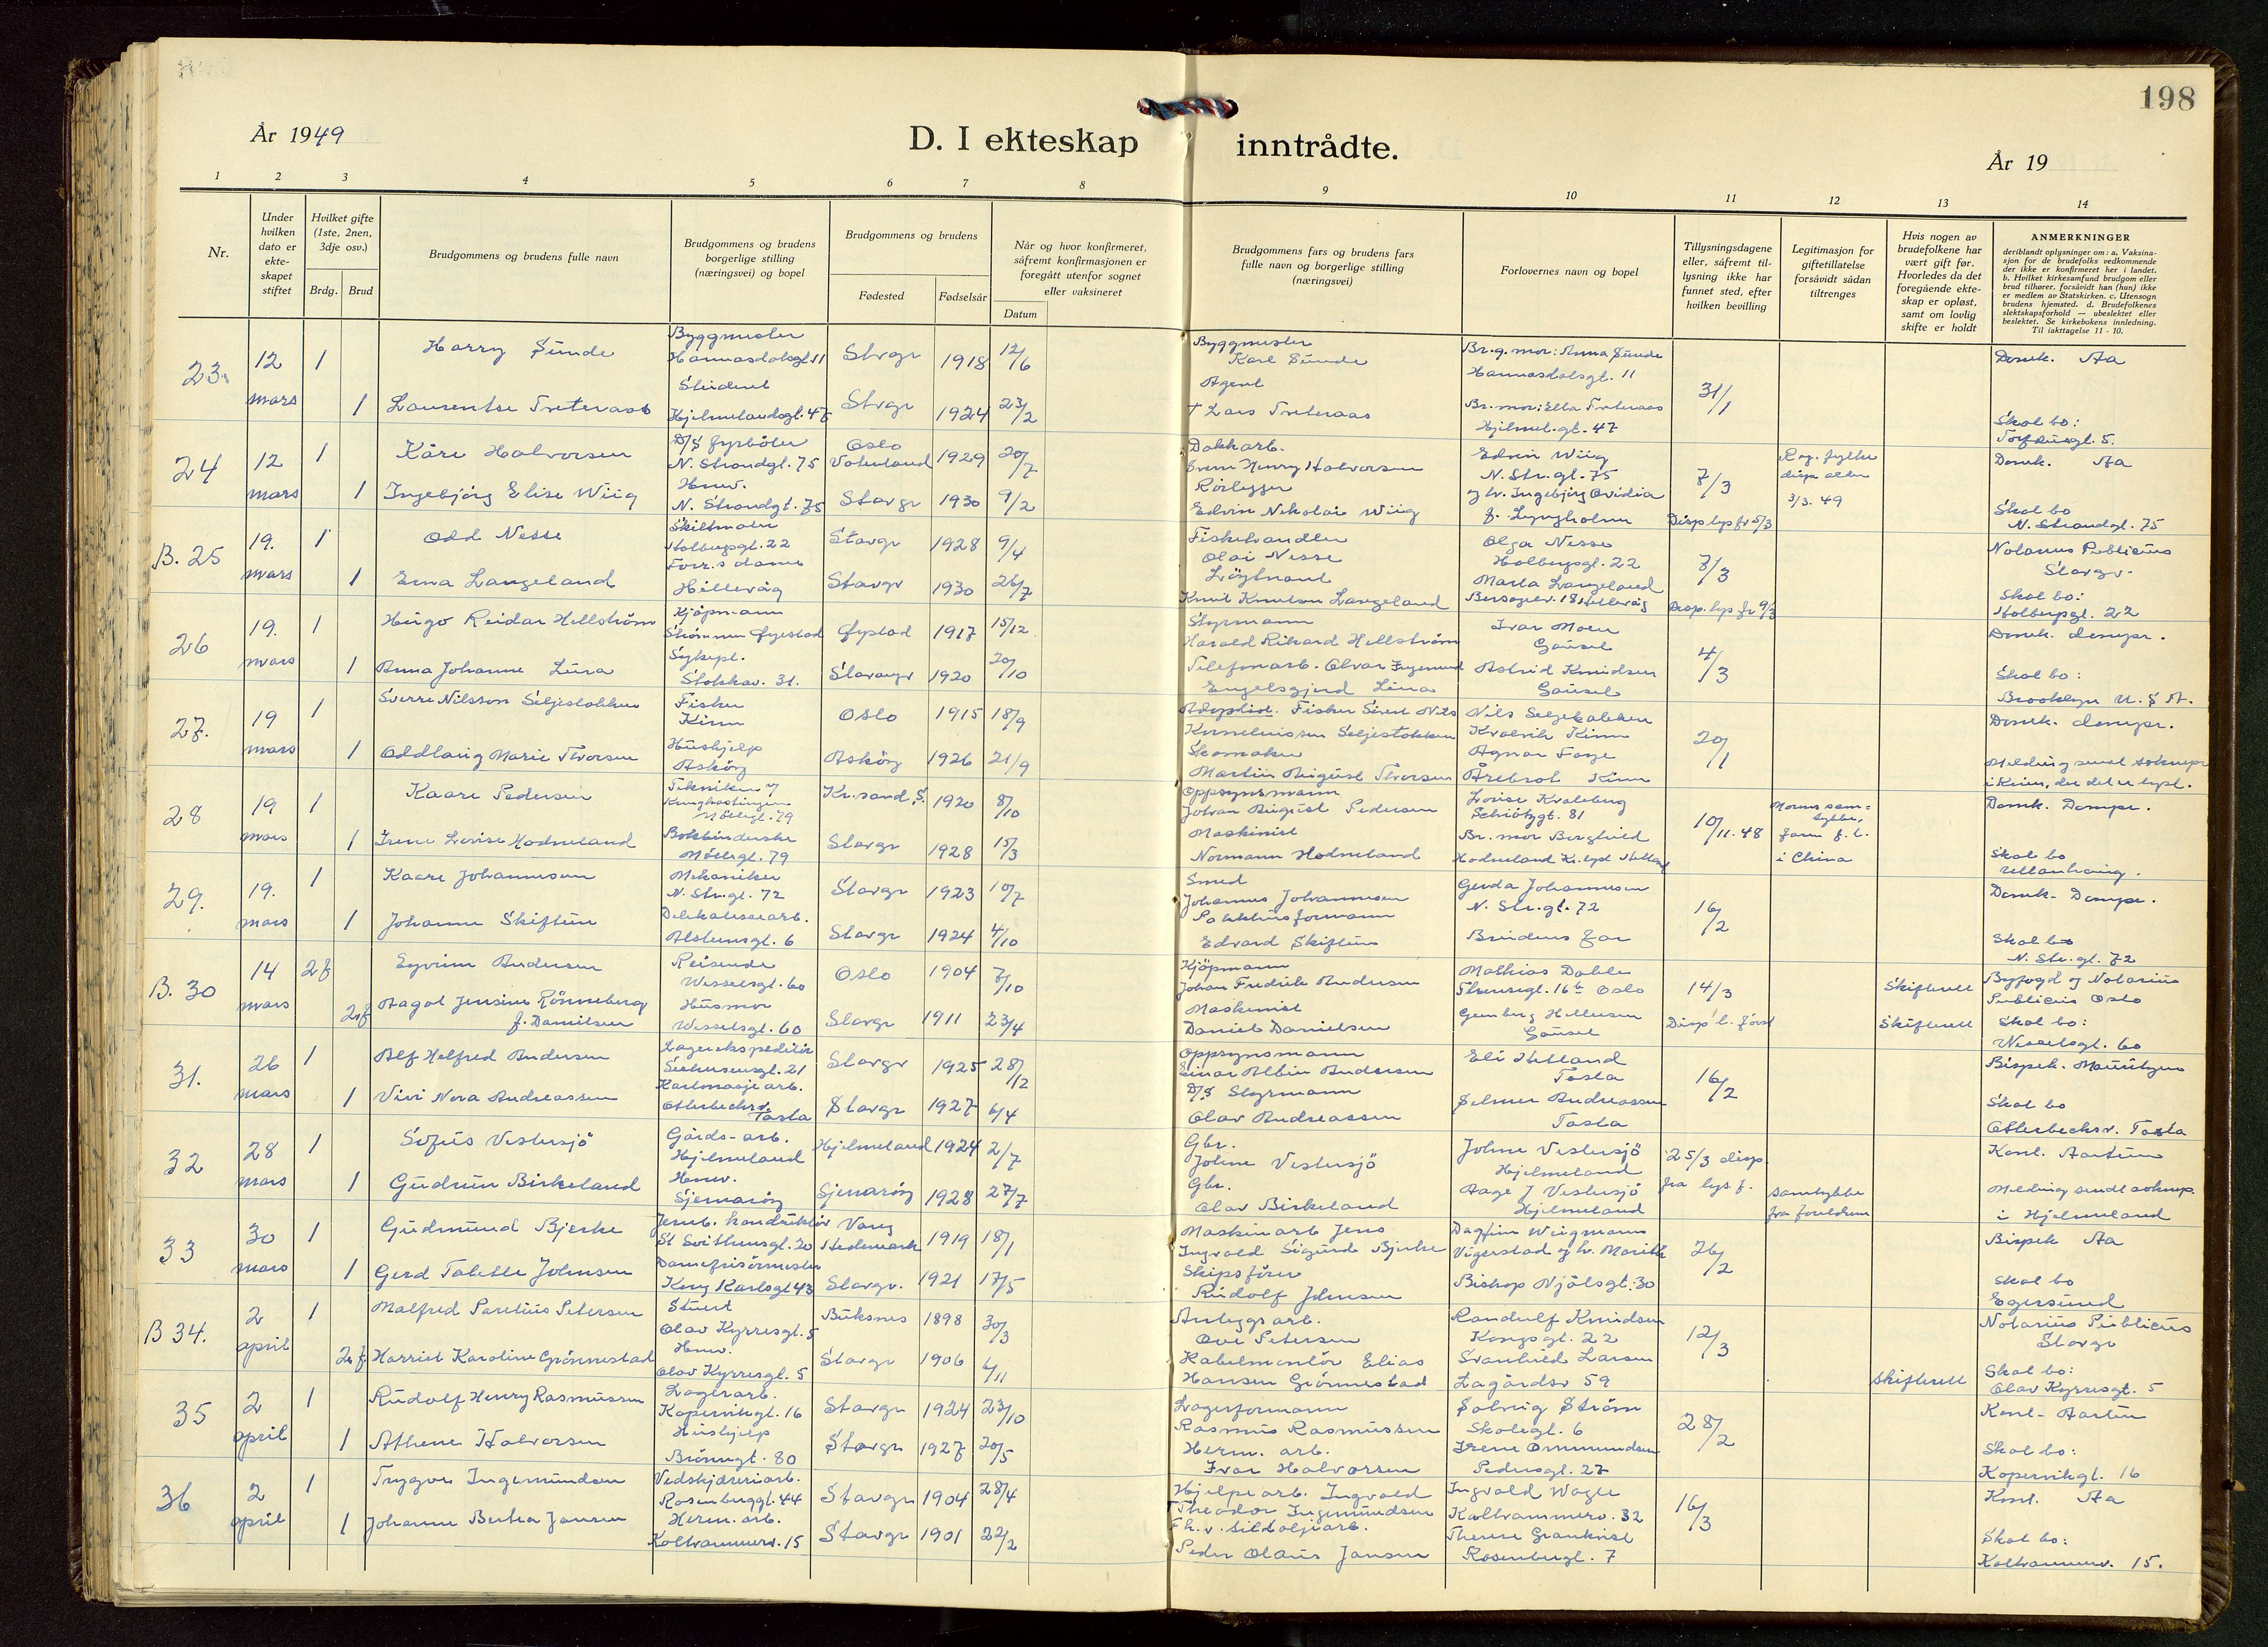 198
År 1949
D. I ekteskap inntrådte.
År 19
1 2 3 4 5 6 7 8 9 10 11 12 13 14
Nr.
Under hvilken dato er ekte-skapet stiftet
Hvilket gifte (1ste, 2nen, 3dje osv.)
Brdg. Brud
Brudgommens og brudens fulle navn
Brudgommens og brudens borgerlige stilling (næringsvei) og bopel
Brudgommens og brudens
Fødested Fødselsår
Når og hvor konfirmeret, såfremt konfirmasjonen er foregått utenfor sognet eller vaksineret
Datum
Brudgommens fars og brudens fars fulle navn og borgerlige stilling (næringsvei)
Forlovernes navn og bopel
Tillysningsdagene eller, såfremt til-lysning ikke har funnet sted, efter hvilken bevilling
Legitimasjon for giftetillatelse forsåvidt sådan tiltrenges
Hvis nogen av brudefolkene har vært gift før. Hvorledes da det foregående ekte-skap er opløst, samt om lovlig skifte er holdt
ANMERKNINGER
deriblandt oplysninger om: a. Vaksina-sjon for de brudefolks vedkommende der ikke er konfirmeret her i landet. b. Hvilket kirkesamfund brudgom eller brud tilhører, forsåvidt han (hun) ikke er medlem av Statskirken. c. Utensogn brudens hjemsted. d. Brudefolkenes slektskapsforhold — ubeslektet eller beslektet. Se kirkebokens innledning. Til iakttagelse 11 - 10.
23. 12 mars 1 Harry Sunde Byggmester Hannasdalsgt 11 Stvgr 1918 12/6 Byggmester Karl Sunde Br.g.mor: Anna Sunde Hannasdalsgt. 11 31/1 Domk. Aa
1 Laurentse Tveteraas Student Hjelmelandsgt. 47 Stvgr 1924 23/2 Agent † Lars Tveteraas Br.mor: Ella Tveteraas Hjelmel.gt. 47 Skal bo: Torfæusgt. 5.
24 12 mars 1 Kåre Halvorsen D/S fyrböter N. Strandgt. 75 Oslo Vaterland 1929 20/7 Dokkarb. Henry Halvorsen Edvin Wiig N. Str.gt. 75 7/3 Rog. fylke 3/3. 49 Domk. Aa
1 Ingebjörg Elise Wiig Hmv. N. Strandgt. 75 Stavgr 1930 9/2 Rörlegger Edvin Nikolai Wiig og hv. Ingebjörg Ovidia f. Lyngholm Disp lys fr 5/3 Skal bo N. Strandgt. 75
B. 25 19. mars 1 Odd Nesse Skiltmaler Holbergsgt. 22 Stavgr 1928 9/4 Fiskehandler Olai Nesse Olga Nesse Holbergsgt. 22 7/3 Notarius Publicus Stavgr.
1 Erna Langeland Forr.s dame Hillevåg Stavgr 1930 26/7 Löytnant Knut Knutson Langeland Marta Langeland Hillevåg Disp. lys fr 9/3 Skal bo: Holbergsgt. 22
26 19. mars 1 Hugo Reidar Hellström Kjöpmann Strömmen Öyestad Öystad 1917 15/12 Styrmann Harald Rikard Hellström Ivar Moen Gausel 4/3 Domk. dempr.
1 Anna Johanne Lura Sykepl. Stokkav. 31. Stavangr 1920 20/10 Telefonarb. Olvar Ingemund Engelsgjerd Lura Astrid Knudsen Gausel Skal bo: Brooklyn U. S A.
27. 19 mars 1 Sverre Nilsson Seljestokken Fisker Kinn Oslo 1915 18/9 Adoptivf. Fisker Sivert Nils Korneliussen Seljestokken Nils Seljestokken Kvalvik Kinn 20/1 Domk. dempr.
1 Oddlaug Marie Thorsen Hushjelp Asköy Asköy 1926 21/9 Skomaker Martin August Thorsen Agnar Fosse Årebrot Kinn Melding sendt soknepr i Kinn, der det er lyst.
28 19 mars 1 Kaare Pedersen Tekniker Kr.sand S. 1920 8/10 Oppsynsmann Johan August Pedersen Lovise Kvaleberg Schiötzgt. 81 10/11. 48 Domk. Dempr.
1 Irene Lovise Hodneland Bokbinderske Mölegt. 79 Stavgr 1928 15/3 Maskinist Normann Hodneland Br. mor Borghild Hodneland i China Skal bo Ullanhaug.
29. 19. mars 1 Kaare Johannesen Mekaniker N. Str.gt. 72 Stavgr 1923 10/7 Smed Johannes Johannesen Gerda Johannesen N. Str.gt. 72 16/2 Domk. Dempr.
1 Johanne Skiftun Delikatessearb. Alstensgt. 6 Stavgr 1924 4/10 Pakkhusformann Edvard Skiftun Brudens far Skal bo N. Str.gt. 72
B. 30 14 mars 2 f Eyvinn Andersen Reisende Wesselsgt. 60 Oslo 1904 7/10 Kjöpmann Johan Fredrik Andersen Mathias Dahle Oslo 14/3 Skifterett Byfogd og Notarius Publicus Oslo
2 f Aagot Jensine Rönneberg f. Danielsen Husmor Wesselsgt. 60 Stavgr 1911 23/4 Maskinist Daniel Danielsen Gunborg Hellesen Gausel Skifterett Skal bo: Wesselsgt. 60
31. 26 mars 1 Alf Helfred Andersen Lagerekspeditör Seehusensgt. 21 Stavgr 1925 28/12 Oppsynsmann Einar Albin Andersen Eli Helland Tasta 16/2 Bispek. Mauritzen
1 Vivi Nora Andreassen Kartonasjearb. Otterbechsv. Tasta Stavgr 1927 6/4 D/S Styrmann Olav Andreassen Selmer Andreassen Tasta Skal bo Otterbechsv. Tasta
32 28 mars 1 Sofus Vestersjö Gårds-arb. Hjelmeland Hjelmeland 1924 2/7 Gbr. Johne Vestersjö Johne Vestersjö Hjelmeland 25/3 disp. fra lys f. Konl. Aartun
1 Gudrun Birkeland Hmv. Sjernaröy Sjernaröy 1928 27/7 Gbr. Olav Birkeland Aage J Vestersjö Hjelmeland samtykke fra foreldrene Melding sendt soknep. i Hjelmeland
33 30 mars 1 Gudmund Bjerke Jernb. konduktör St Svithunsgt. 20 Vang Hedemark 1919 18/1 Maskinarb Jens Ingvald Sigurd Bjerke Dagfinn Wiigmann Vigerstad og hv. Marith 26/2 Bispek Aa
1 Gerd Talette Johnsen Damefrisörmester Kong Karlsgt 43 Stavgr. 1921 17/5 Skipsförer Rudolf Johnsen Bishop Njålsgt. 30 Skal bo Egersund
B 34. 2 april 1 Malfred Paretius Petersen Stuert Olav Kyrresgt. 5 Buksnes 1898 30/3 Anleggsarb. Ove Petersen Randulf Knudsen Kongsgt. 22 12/3 Notarius Publicus Stavgr
2 f Harriet Karoline Grönnestad Hmv. Olav Kyrresgt. 5 Stavgr 1906 4/11 Kabelmontör Elias Hansen Grönnestad Svanhild Larsen Lagårdsv 59 skifterett Skal bo: Olav Kyrresgt. 5
35 2 april 1 Rudolf Henry Rasmussen Lagerarb. Kopervikgt. 16 Stavgr 1924 23/10 Lagerformann Rasmus Rasmussen Solveig Ström Skolegt. 6 28/2 Konl. Aartun
1 Athene Halvorsen Hushjelp Brönngt. 80 Stavgr 1927 20/5 Herm. arb. Ivar Halvorsen Irene Ommundsen Pedersgt. 27 Skal bo: Kopervikgt. 16
36 2 april 1 Trygve Ingemundsen Vedskjæreriarb. Rosenberggt. 44 Stavgr 1904 28/4 Hjelpearb. Ingvald Theodor Ingemundsen Ingvald Wagle Kolhammerv. 32 16/3 Konl. Aa
1 Johanne Bertea Jansen Herm. arb. Kolhammerv. 15 Stavgr 1901 22/2 Fh. v. Sildoljearb. Peder Olaus Jansen Therese Grankvist Rosenbergt. 7 Skal bo: Kolhammerv. 15.